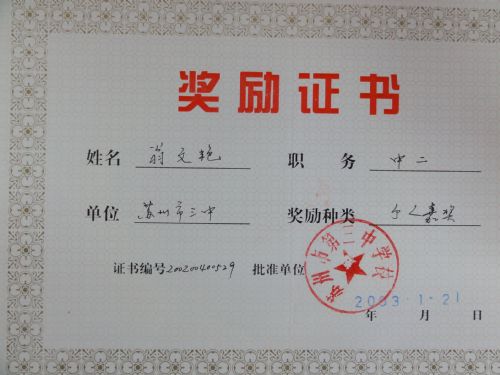 奖励证书
姓名 翁文艳 职务 中二
单位 苏州市三中 奖励种类 个人嘉奖
证书编号200200400529 批准单位
苏州市第三中学校
2003.1.21
年 月 日